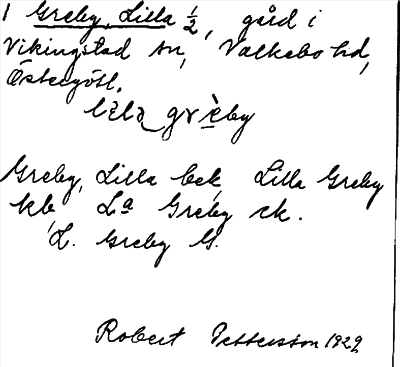 1 Greby, Lilla 1/2, gård i
Vikingstad sn, Valkebo hd,
Östergötl.
lɩla grèby
Greby, Lilla bek, Lilla Greby
kb La Greby ck.
L. Greby G.
Robert Pettersson 1929